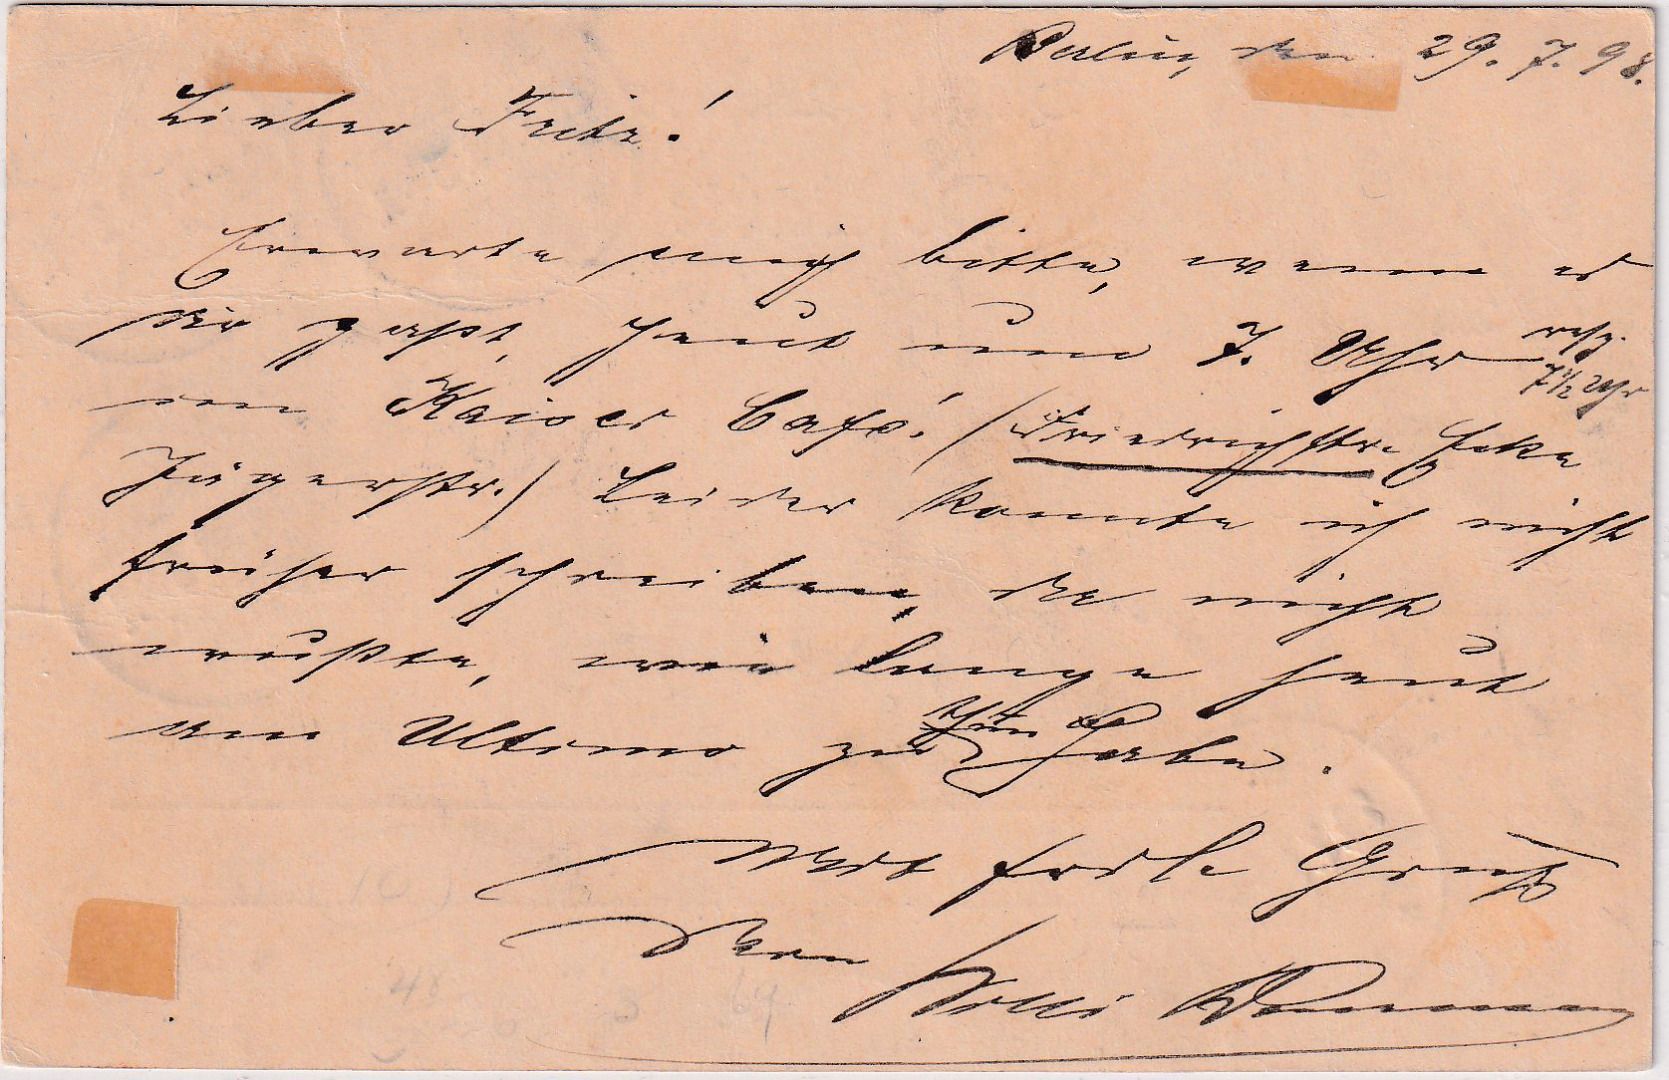 Berlin, den 29.7.98.
Lieber Fritz!
Erwarte mich bitte, wenn es
dir paßt, heut um 7. Uhr resp. 7 1/2 Uhr
im Kaiser Café! (Friedrichstr. Ecke
Jägerstr.) Leider konnte ich nicht
früher schreiben, da nicht
wußte, wie lange heut
am Ultimo zu thun habe.
Mit frdl. Gruß
Dein Willi